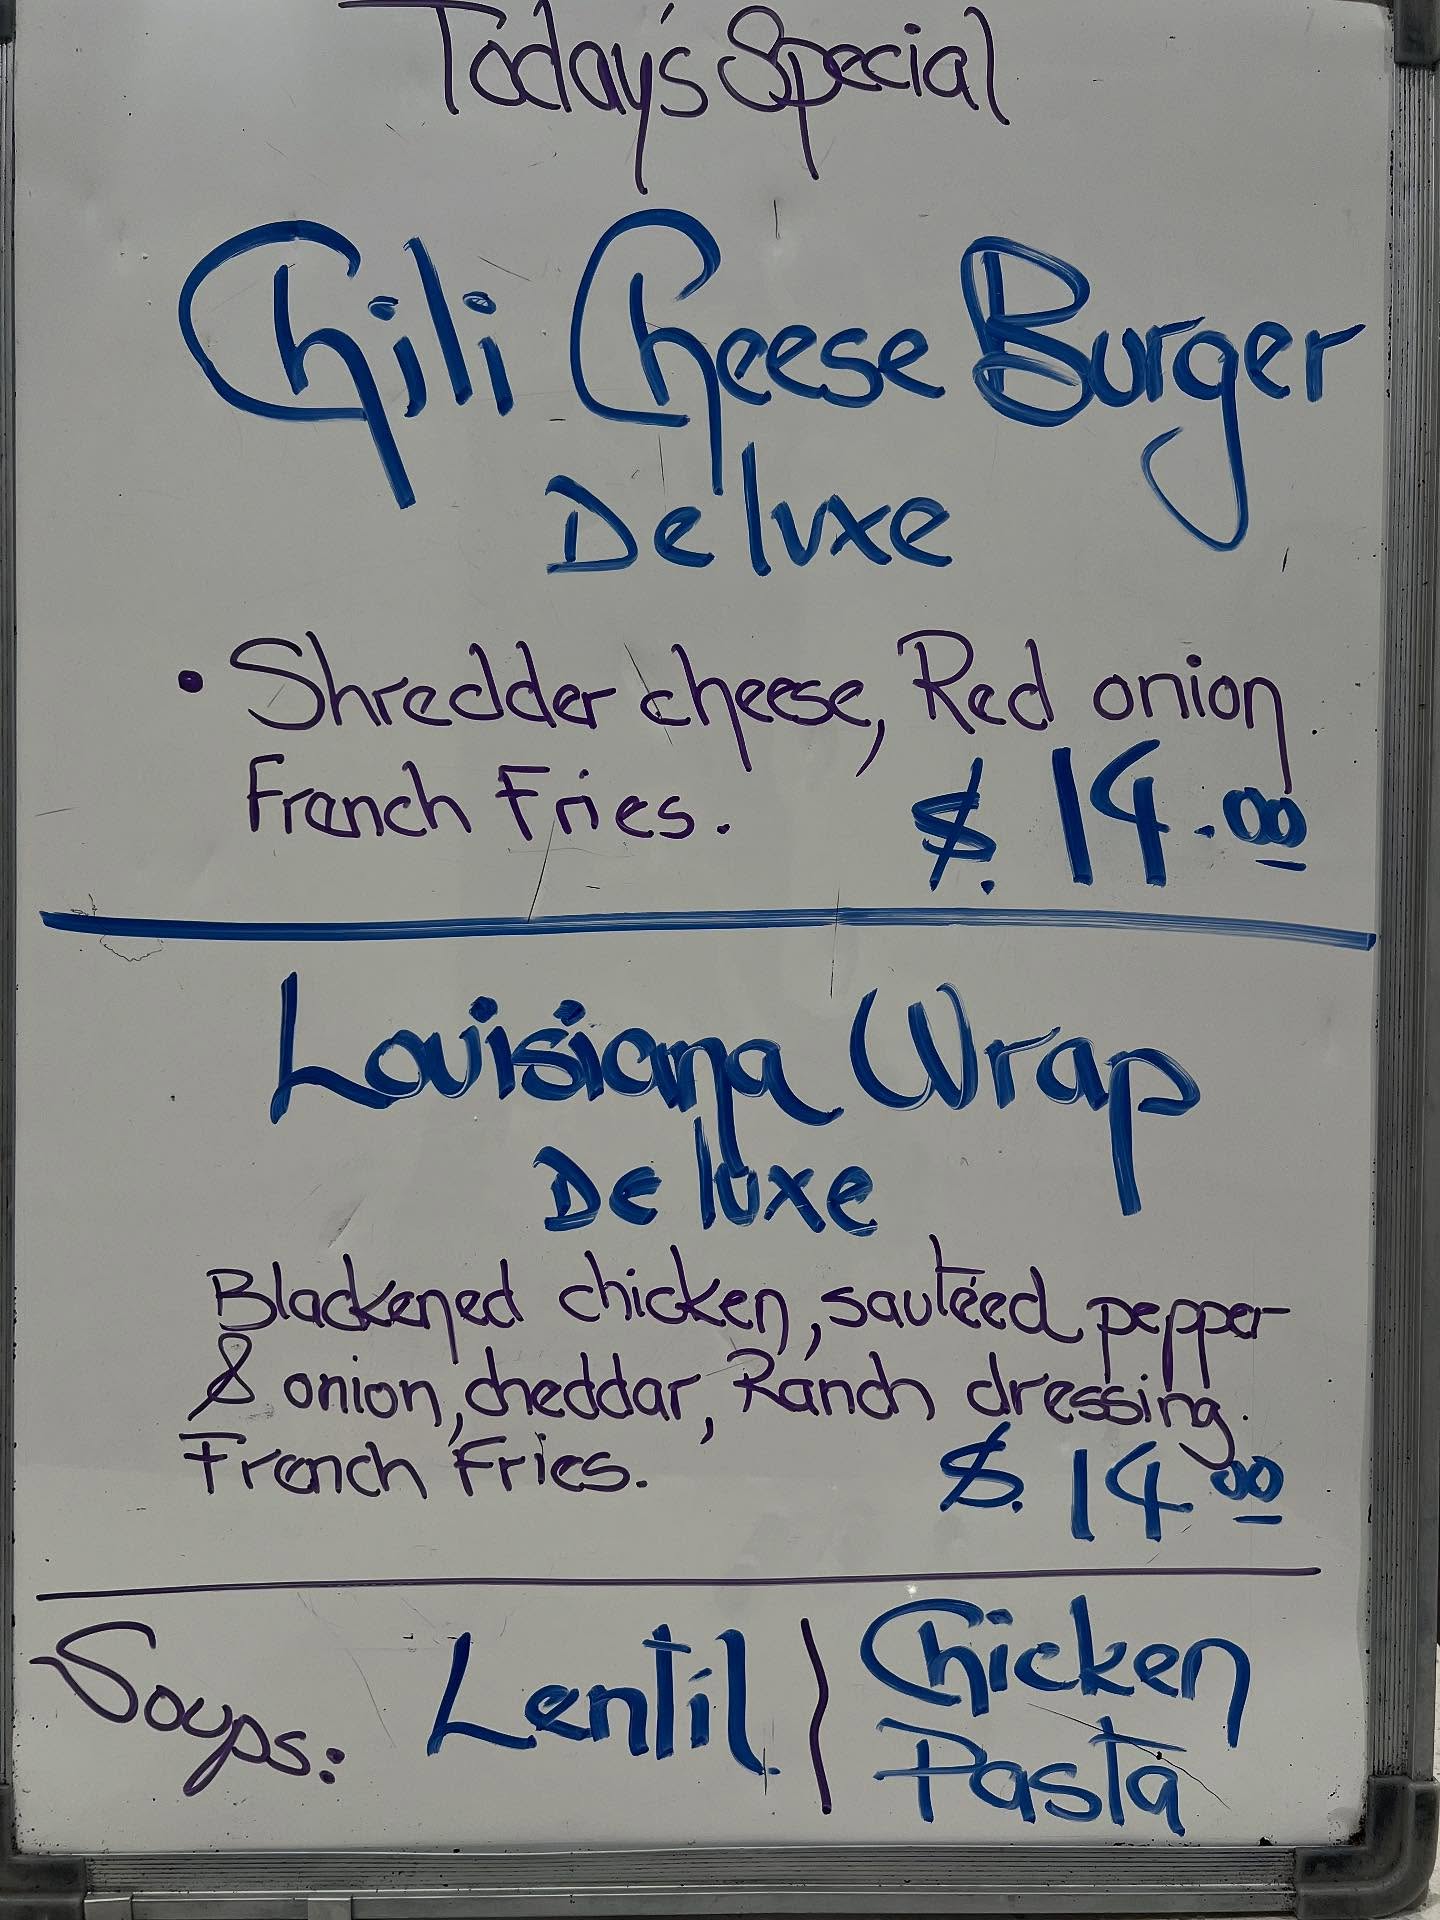 Today's Special
Chili Cheese Burger
Deluxe
• Shredder cheese, Red onion
French Fries. $. 14.00
Louisiana Wrap
Deluxe
Blackened chicken, sautéed pepper
& onion, cheddar, Ranch dressing.
French Fries. $. 14 00
Soups: Lentil | Chicken
Pasta